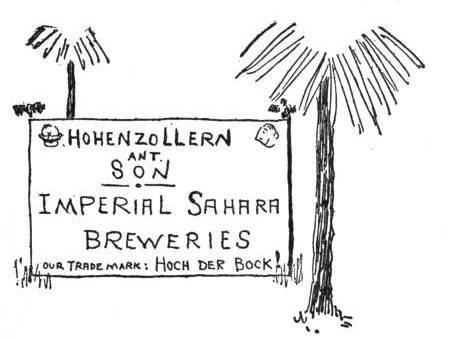 HOHENZOLLERN
ANT.
SON
IMPERIAL SAHARA
BREWERIES
OUR TRADE MARK: HOCH DER BOCK!